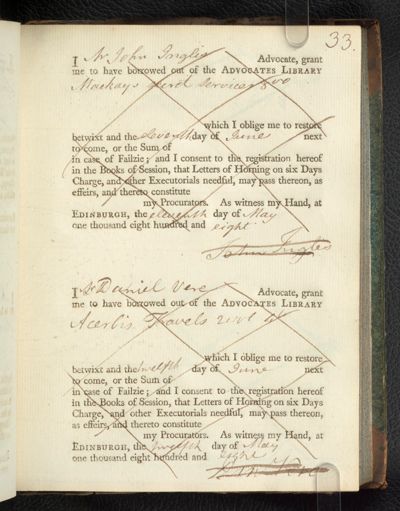 33.
I Mr John Inglis Advocate, grant
me to have borrowed out of the ADVOCATES LIBRARY
Mackays
which I oblige me to restore
betwixt and the eleventh day of June next
to come, or the Sum of
in case of Failzie; and I consent to the registration hereof
in the Books of Session, that Letters of Horning on six Days
Charge, and other Executorials needful, may pass thereon, as
effeirs, and thereto constitute
my Procurators. As witness my Hand, at
EDINBURGH, the eleventh day of May
one thousand eight hundred and eight
John Inglis
I Mr Daniel Vere Advocate, grant
me to have borrowed out of the ADVOCATES LIBRARY
Acerbis Travels
which I oblige me to restore
betwixt and the twelfth day of June next
to come, or the Sum of
in case of Failzie; and I consent to the registration hereof
in the Books of Session, that Letters of Horning on six Days
Charge, and other Executorials needful, may pass thereon,
as effeirs, and thereto constitute
my Procurators. As witness my Hand, at
EDINBURGH, the twelfth day of May
one thousand eight hundred and eight
Vere